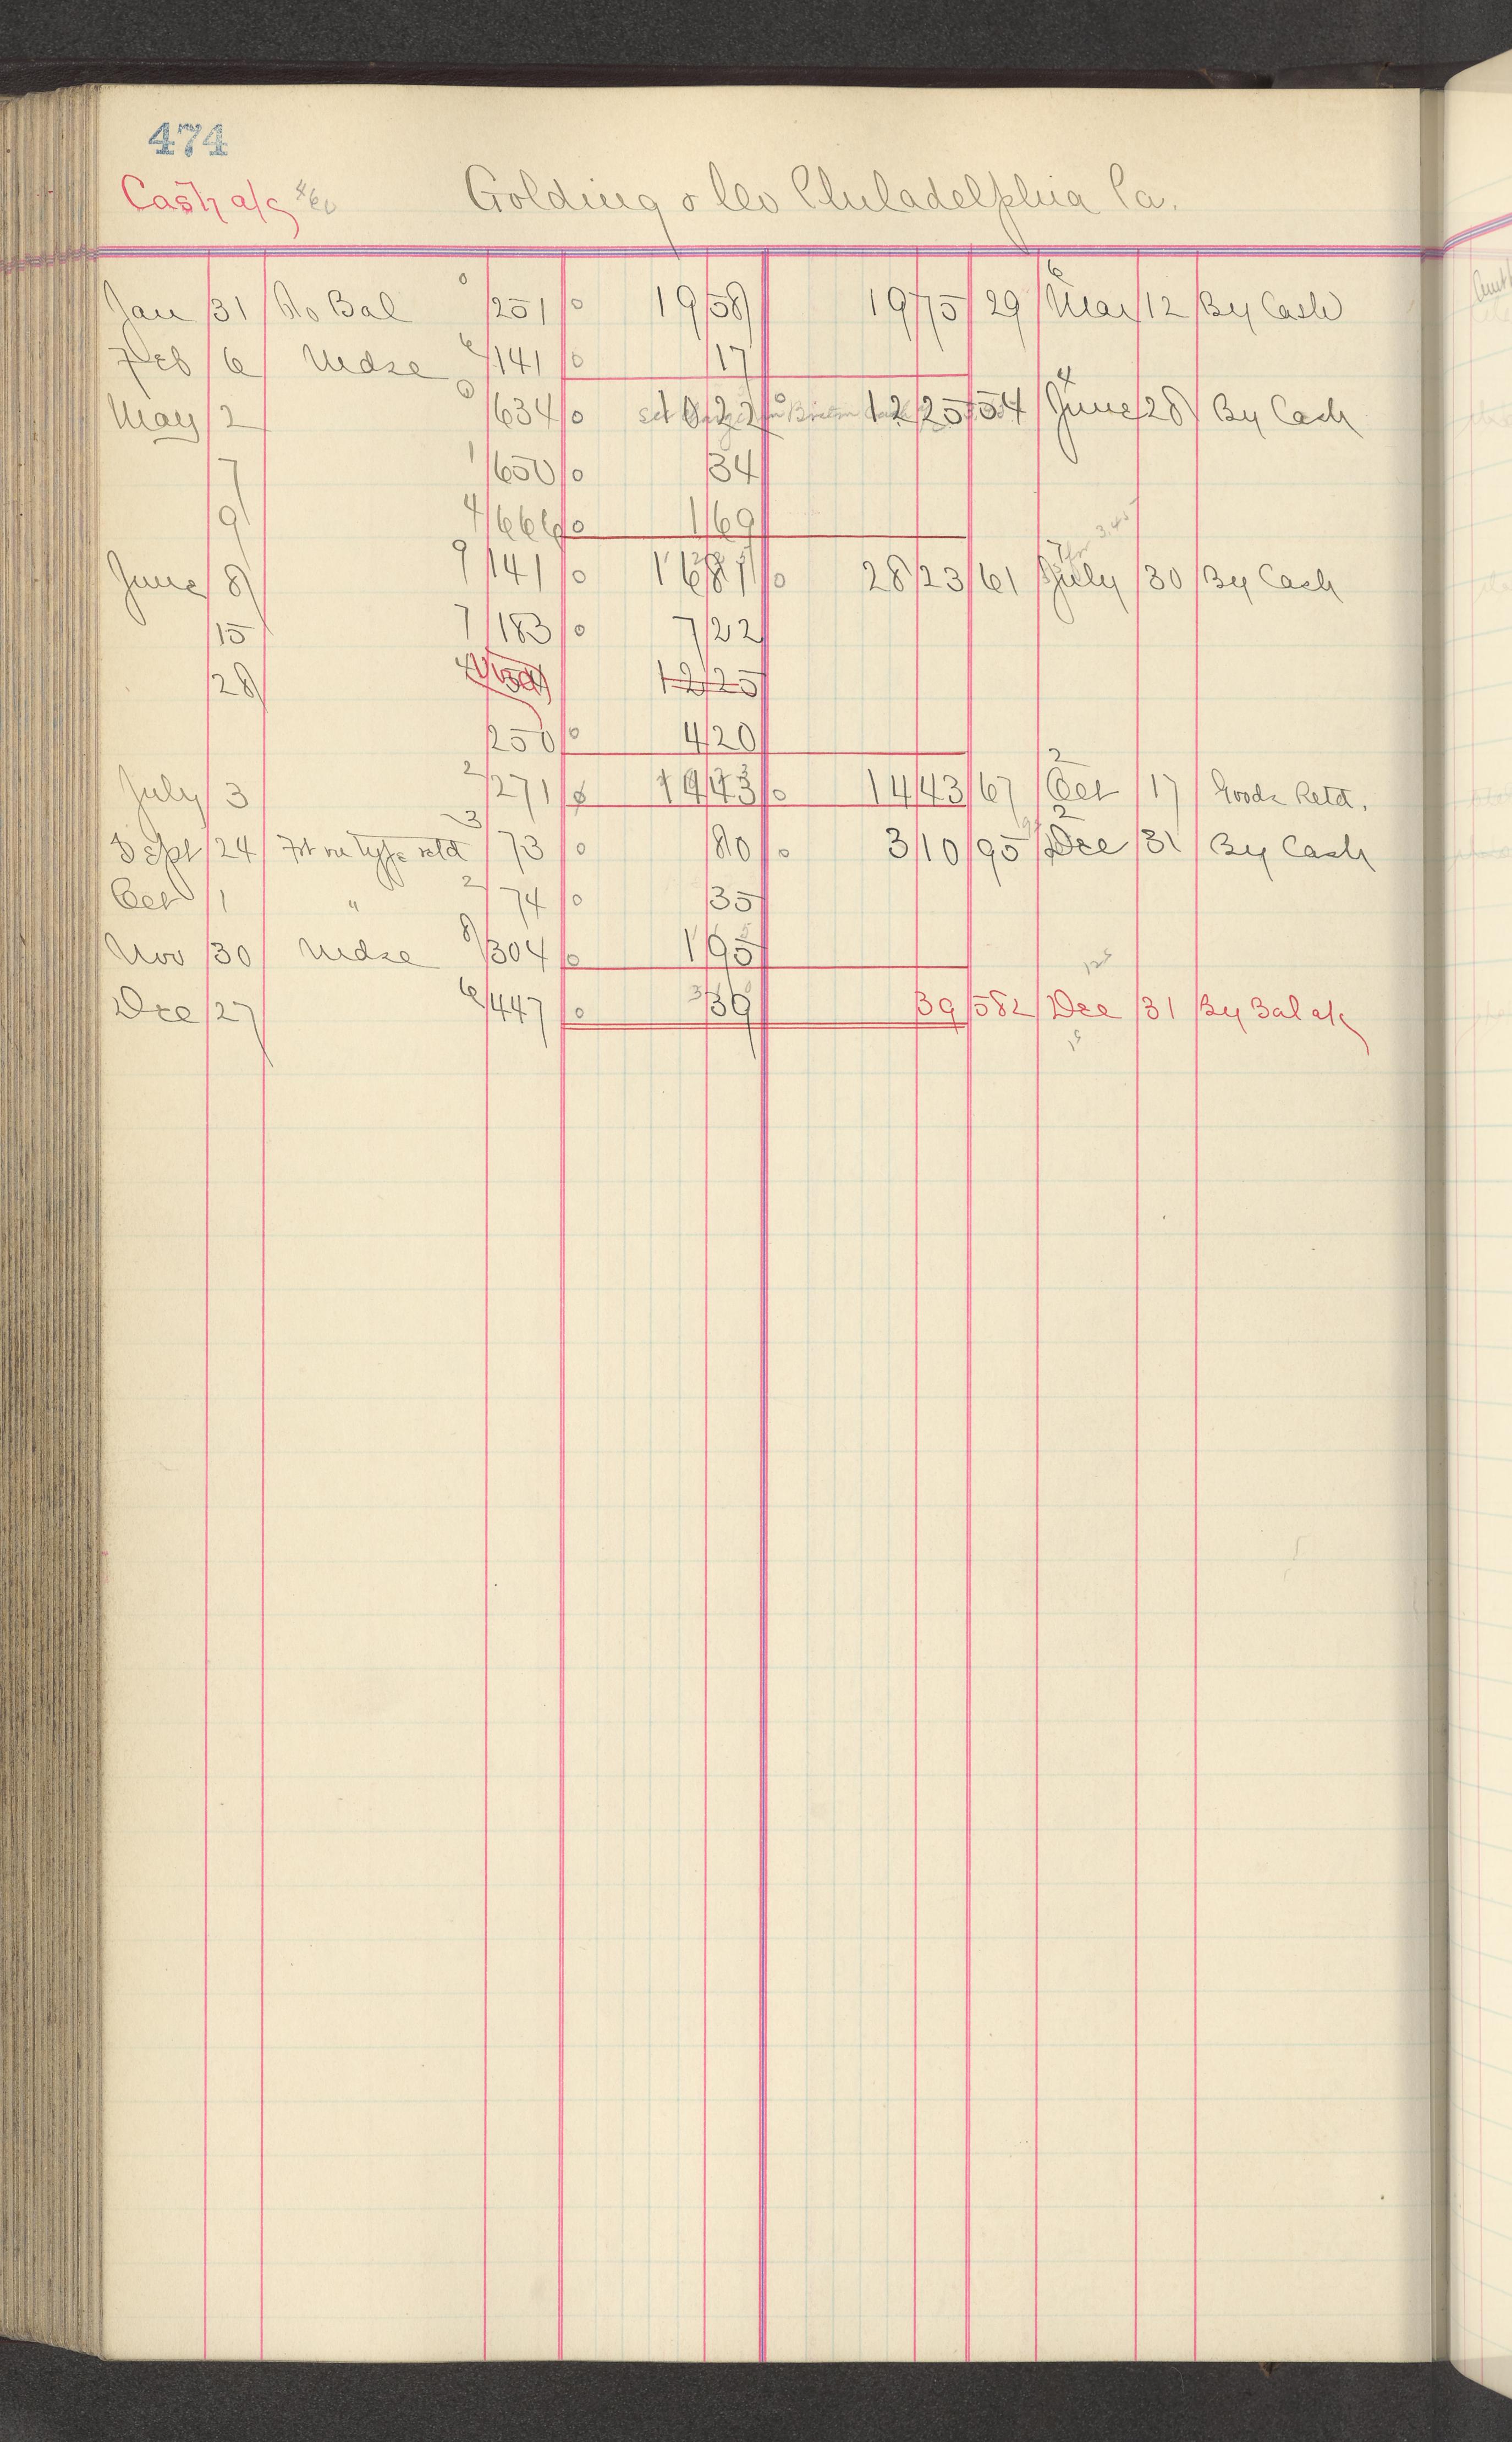 474
Cash a/c 460 Golding & Co Philadelphia Pa.
Jan 31 To Bal 0/251 0 19 58 19 75 29 6 Mar 12 By Cash
Feb 6 Mdse 6/141 0 17
May 2 0/634 0 10 22 0 12 25 54 4 June 28 By Cash
7 1/650 0 34
9 4/666 0 1 69
June 8 9/141 0 16 81 0 28 23 61 7 July 30 By Cash
15 7/183 0 7 22
28 12 25
250 0 4 20
July 3 2/271 0 14 43 0 14 43 67 2 Oct 17 Goods Retd.
Sept 24 Frt on type retd 3/73 0 80 0 3 10 95 2 Dec 31 By Cash
Oct 1 " 2/74 0 35
Nov 30 Mdse 8/304 0 1 95
Dec 27 6/447 0 39 39 582 Dec 31 By Bal a/c